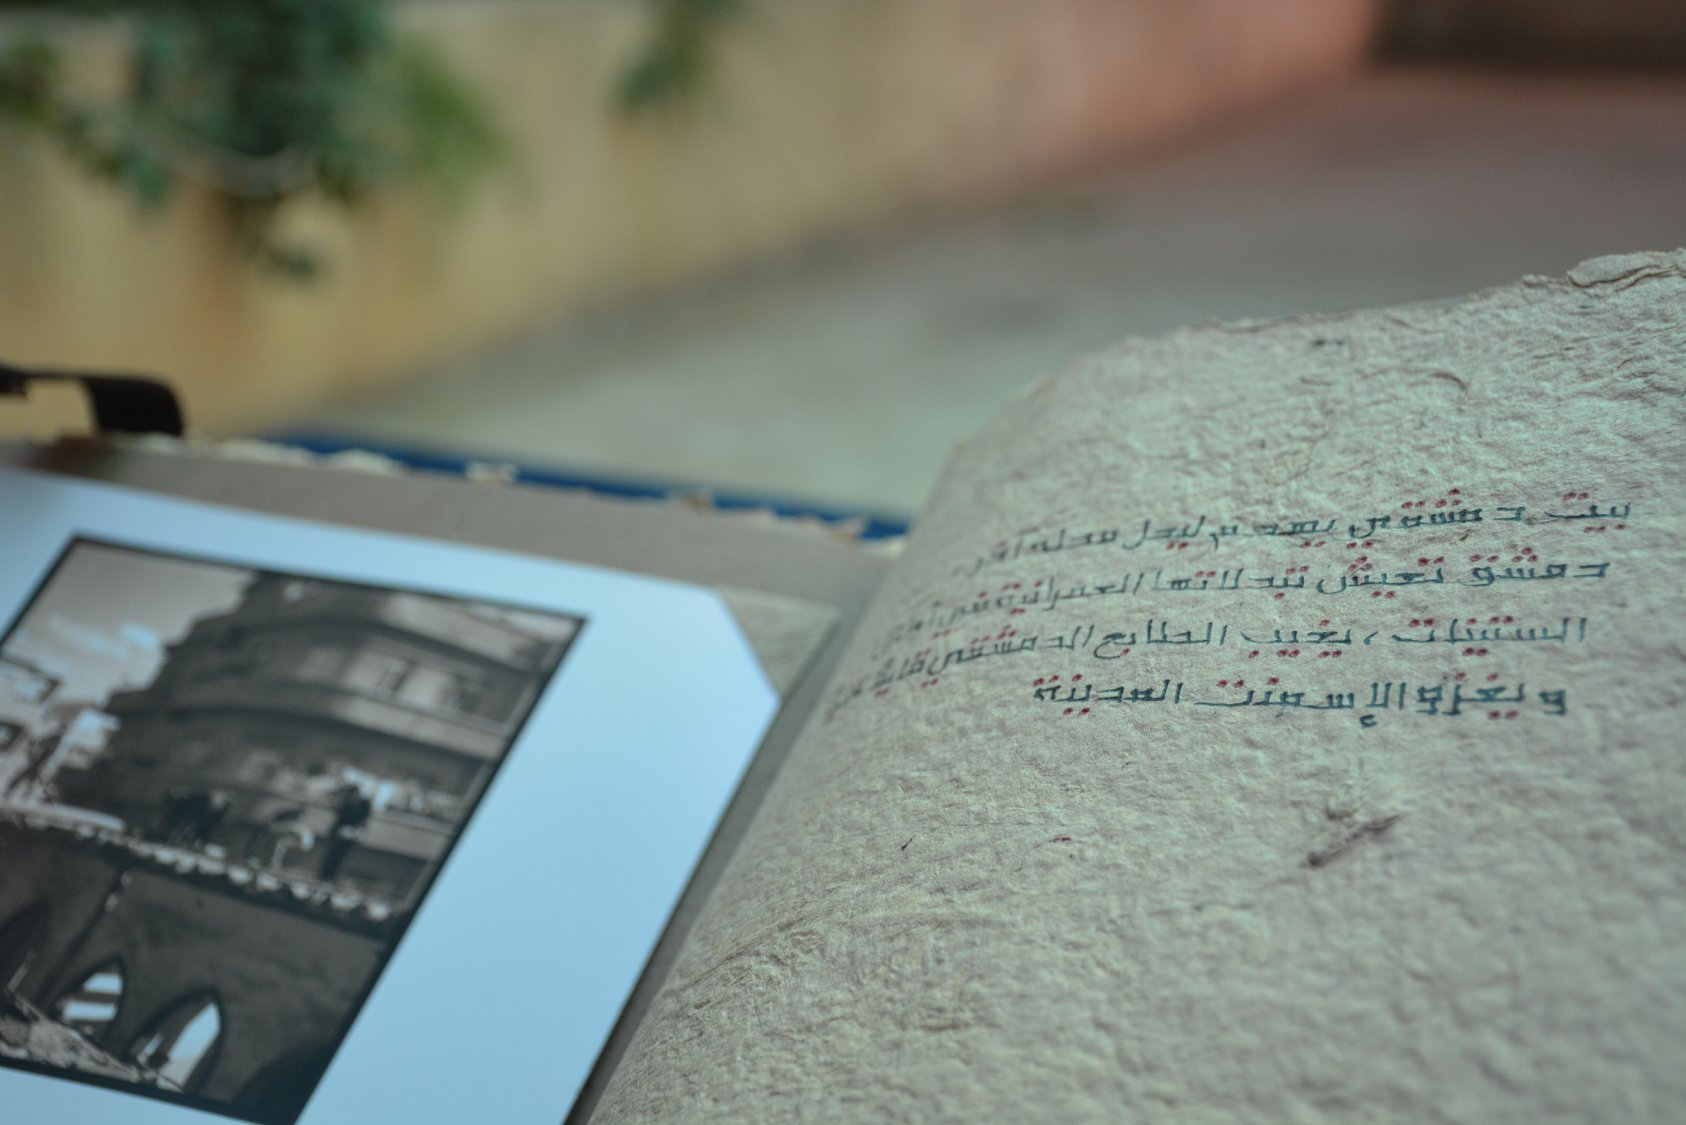 بيت دمشقي يهدم ليحل محله آخر
دمشق تعيش تبدلاتها العمرانية في أواخر
الستينات، يغيب الطابع الدمشقي قليلاً
ويغزو الإسمنت المدينة